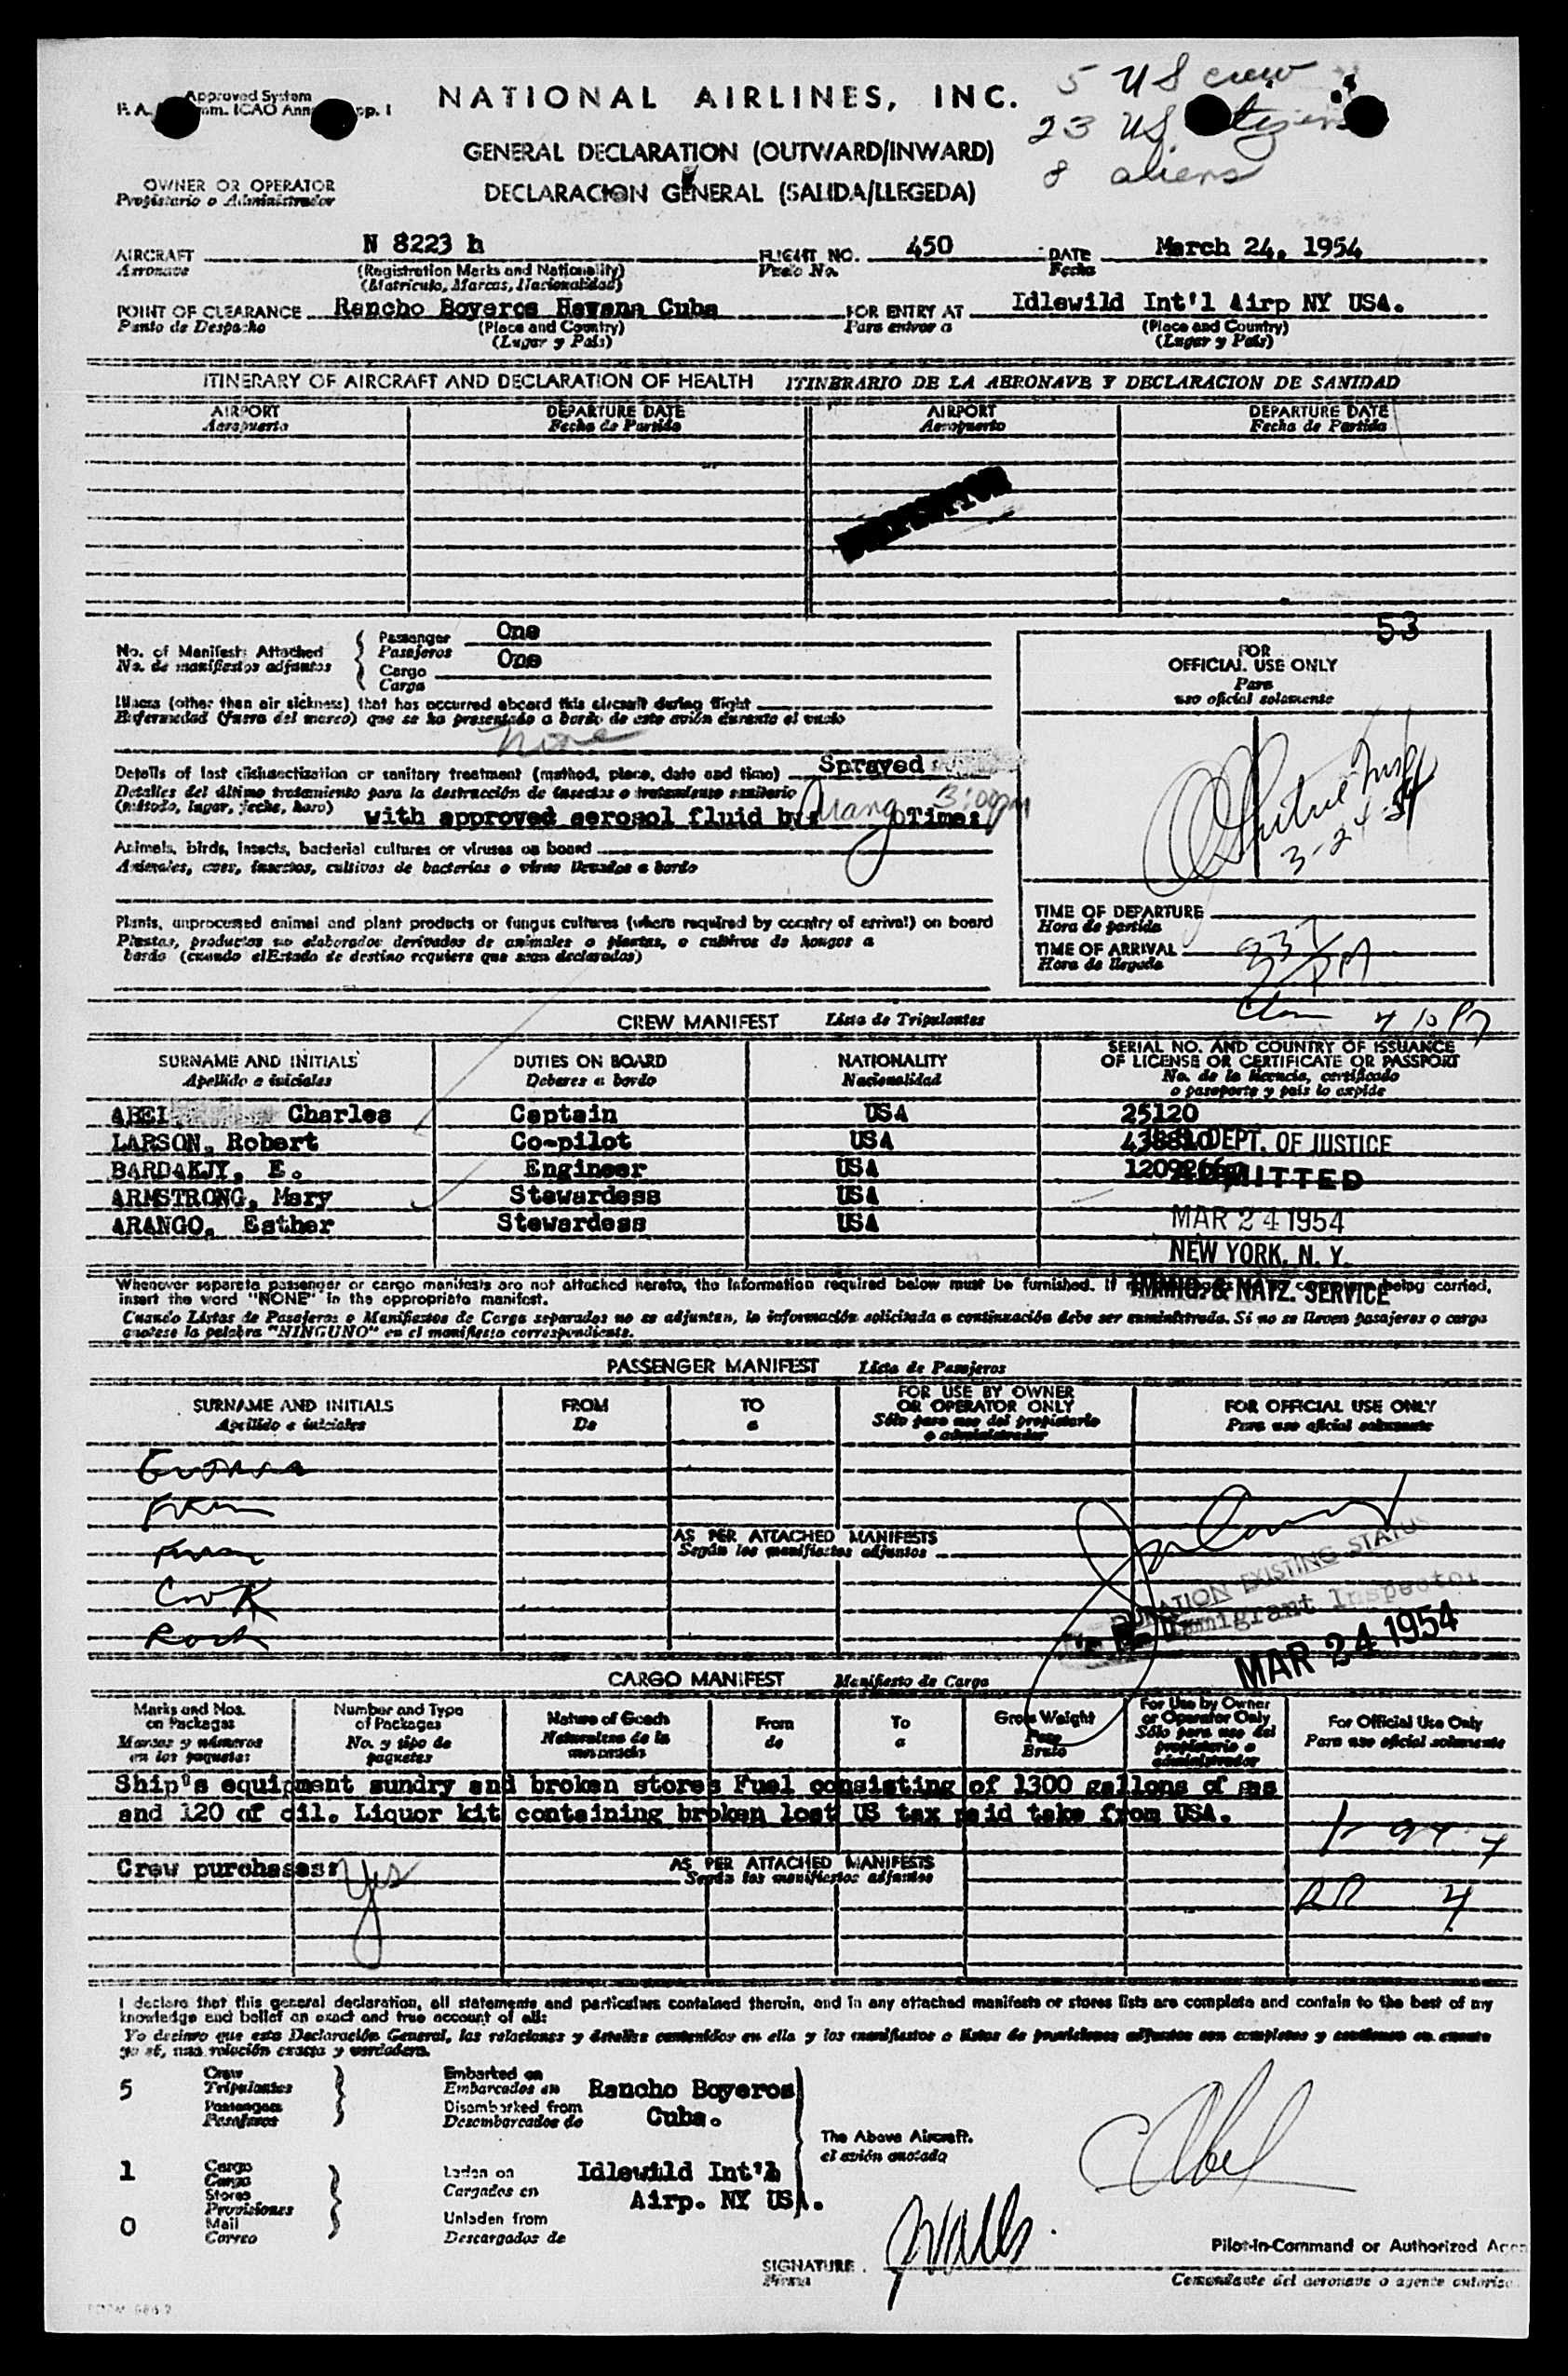 Approved System
NATIONAL AIRLINES, INC.
5 US crew
23 US
8 aliens
GENERAL DECLARATION (OUTWARD/INWARD)
DECLARACION GENERAL (SALIDA/LLEGEDA)
OWNER OR OPERATOR
Propietario o Administrador
AIRCRAFT N 8223 h FLIGHT NO. 450 DATE March 24, 1954
Aeronave (Registration Marks and Nationality) Vuelo No. Fecha
(Matricula, Marcas, Nacionalidad)
POINT OF CLEARANCE Rancho Boyeros Havana Cuba FOR ENTRY AT Idlewild Int'l Airp NY USA.
Punto de Despacho (Place and Country) Para entrar a (Place and Country)
(Lugar y Pais) (Lugar y Pais)
ITINERARY OF AIRCRAFT AND DECLARATION OF HEALTH ITINERARIO DE LA AERONAVE Y DECLARACION DE SANIDAD
AIRPORT DEPARTURE DATE AIRPORT DEPARTURE DATE
Aeropuerto Fecha de Partida Aeropuerto Fecha de Partida
53
No. of Manifests Attached Passenger One
No. de manifiestos adjuntos Pasajeros
Cargo One
Carga
FOR
OFFICIAL USE ONLY
Para
uso oficial solamente
Illness (other than air sickness) that has occurred aboard this aircraft during flight
Enfermedad (fuera del mareo) que se ha presentado a bordo de este avión durante el vuelo
None
Details of last disinsectization or sanitary treatment (method, place, date and time) Sprayed
Detalles del último tratamiento para la destrucción de insectos o tratamiento sanitario
(método, lugar, fecha, hora) with approved aerosol fluid by: Arango Time: 3:00pm
3-24-54
Animals, birds, insects, bacterial cultures or viruses on board
Animales, aves, insectos, cultivos de bacterias o virus llevados a bordo
Plants, unprocessed animal and plant products or fungus cultures (where required by country of arrival) on board
Plantas, productos no elaborados derivados de animales o plantas, o cultivos de hongos a
bordo (cuando el Estado de destino requiere que sean declarados)
TIME OF DEPARTURE
Hora de partida
TIME OF ARRIVAL 337 PM
Hora de llegada
4 10 PM
CREW MANIFEST Lista de Tripulantes
SURNAME AND INITIALS DUTIES ON BOARD NATIONALITY SERIAL NO. AND COUNTRY OF ISSUANCE
OF LICENSE OR CERTIFICATE OR PASSPORT
Apellido e iniciales Deberes a bordo Nacionalidad No. de la licencia, certificado
o pasaporte y pais lo expide
ABEL, Charles Captain USA 25120
LARSON, Robert Co-pilot USA 438810
BARDAKJY, E. Engineer USA
ARMSTRONG, Mary Stewardess USA
ARANGO, Esther Stewardess USA
DEPT. OF JUSTICE
ADMITTED
MAR 24 1954
NEW YORK, N. Y.
IMMIG. & NATZ. SERVICE
Whenever separate passenger or cargo manifests are not attached hereto, the information required below must be furnished. If being carried,
insert the word "NONE" in the appropriate manifest.
Cuando Listas de Pasajeros o Manifiestos de Carga separados no se adjuntan, la información solicitada a continuación debe ser suministrada. Si no se llevan pasajeros o carga
anotese la palabra "NINGUNO" en el manifiesto correspondiente.
PASSENGER MANIFEST Lista de Pasajeros
SURNAME AND INITIALS FROM TO FOR USE BY OWNER
OR OPERATOR ONLY FOR OFFICIAL USE ONLY
Apellido e iniciales De a Sólo para uso del propietario
o administrador Para uso oficial solamente
AS PER ATTACHED MANIFESTS
Según los manifiestos adjuntos
Cook
Rock
DURATION EXISTING STATUS
Immigrant Inspector
MAR 24 1954
CARGO MANIFEST Manifiesto de Carga
Marks and Nos.
on Packages
Marcas y números
en los paquetes
Number and Type
of Packages
No. y tipo de
paquetes
Nature of Goods
Naturaleza de la
mercancía
From
de
To
a
Gross Weight
Peso
Bruto
For Use by Owner
or Operator Only
Sólo para uso del
propietario o
administrador
For Official Use Only
Para uso oficial solamente
Ship's equipment sundry and broken stores Fuel consisting of 1300 gallons of gas
and 120 of oil. Liquor kit containing broken lost US tax paid take from USA.
Crew purchases: Yes
AS PER ATTACHED MANIFESTS
Según los manifiestos adjuntos
I declare that this general declaration, all statements and particulars contained therein, and in any attached manifests or stores lists are complete and contain to the best of my
knowledge and belief an exact and true account of all:
Yo declaro que esta Declaración General, las relaciones y detalles contenidos en ella y los manifiestos o listas de provisiones adjuntos son completos y contienen en cuanto
yo sé, una relación exacta y verdadera.
5 Crew
Tripulantes
Passengers
Pasajeros
Embarked on
Embarcados en
Disembarked from
Desembarcados de
Rancho Boyeros
Cuba.
The Above Aircraft.
el avión anotado
1 Cargo
Carga
Stores
Provisiones
0 Mail
Correo
Laden on
Cargados en
Unladen from
Descargados de
Idlewild Int'l
Airp. NY USA.
C Abel
Pilot-in-Command or Authorized
SIGNATURE
Firma
Comandante del aeronave o agente